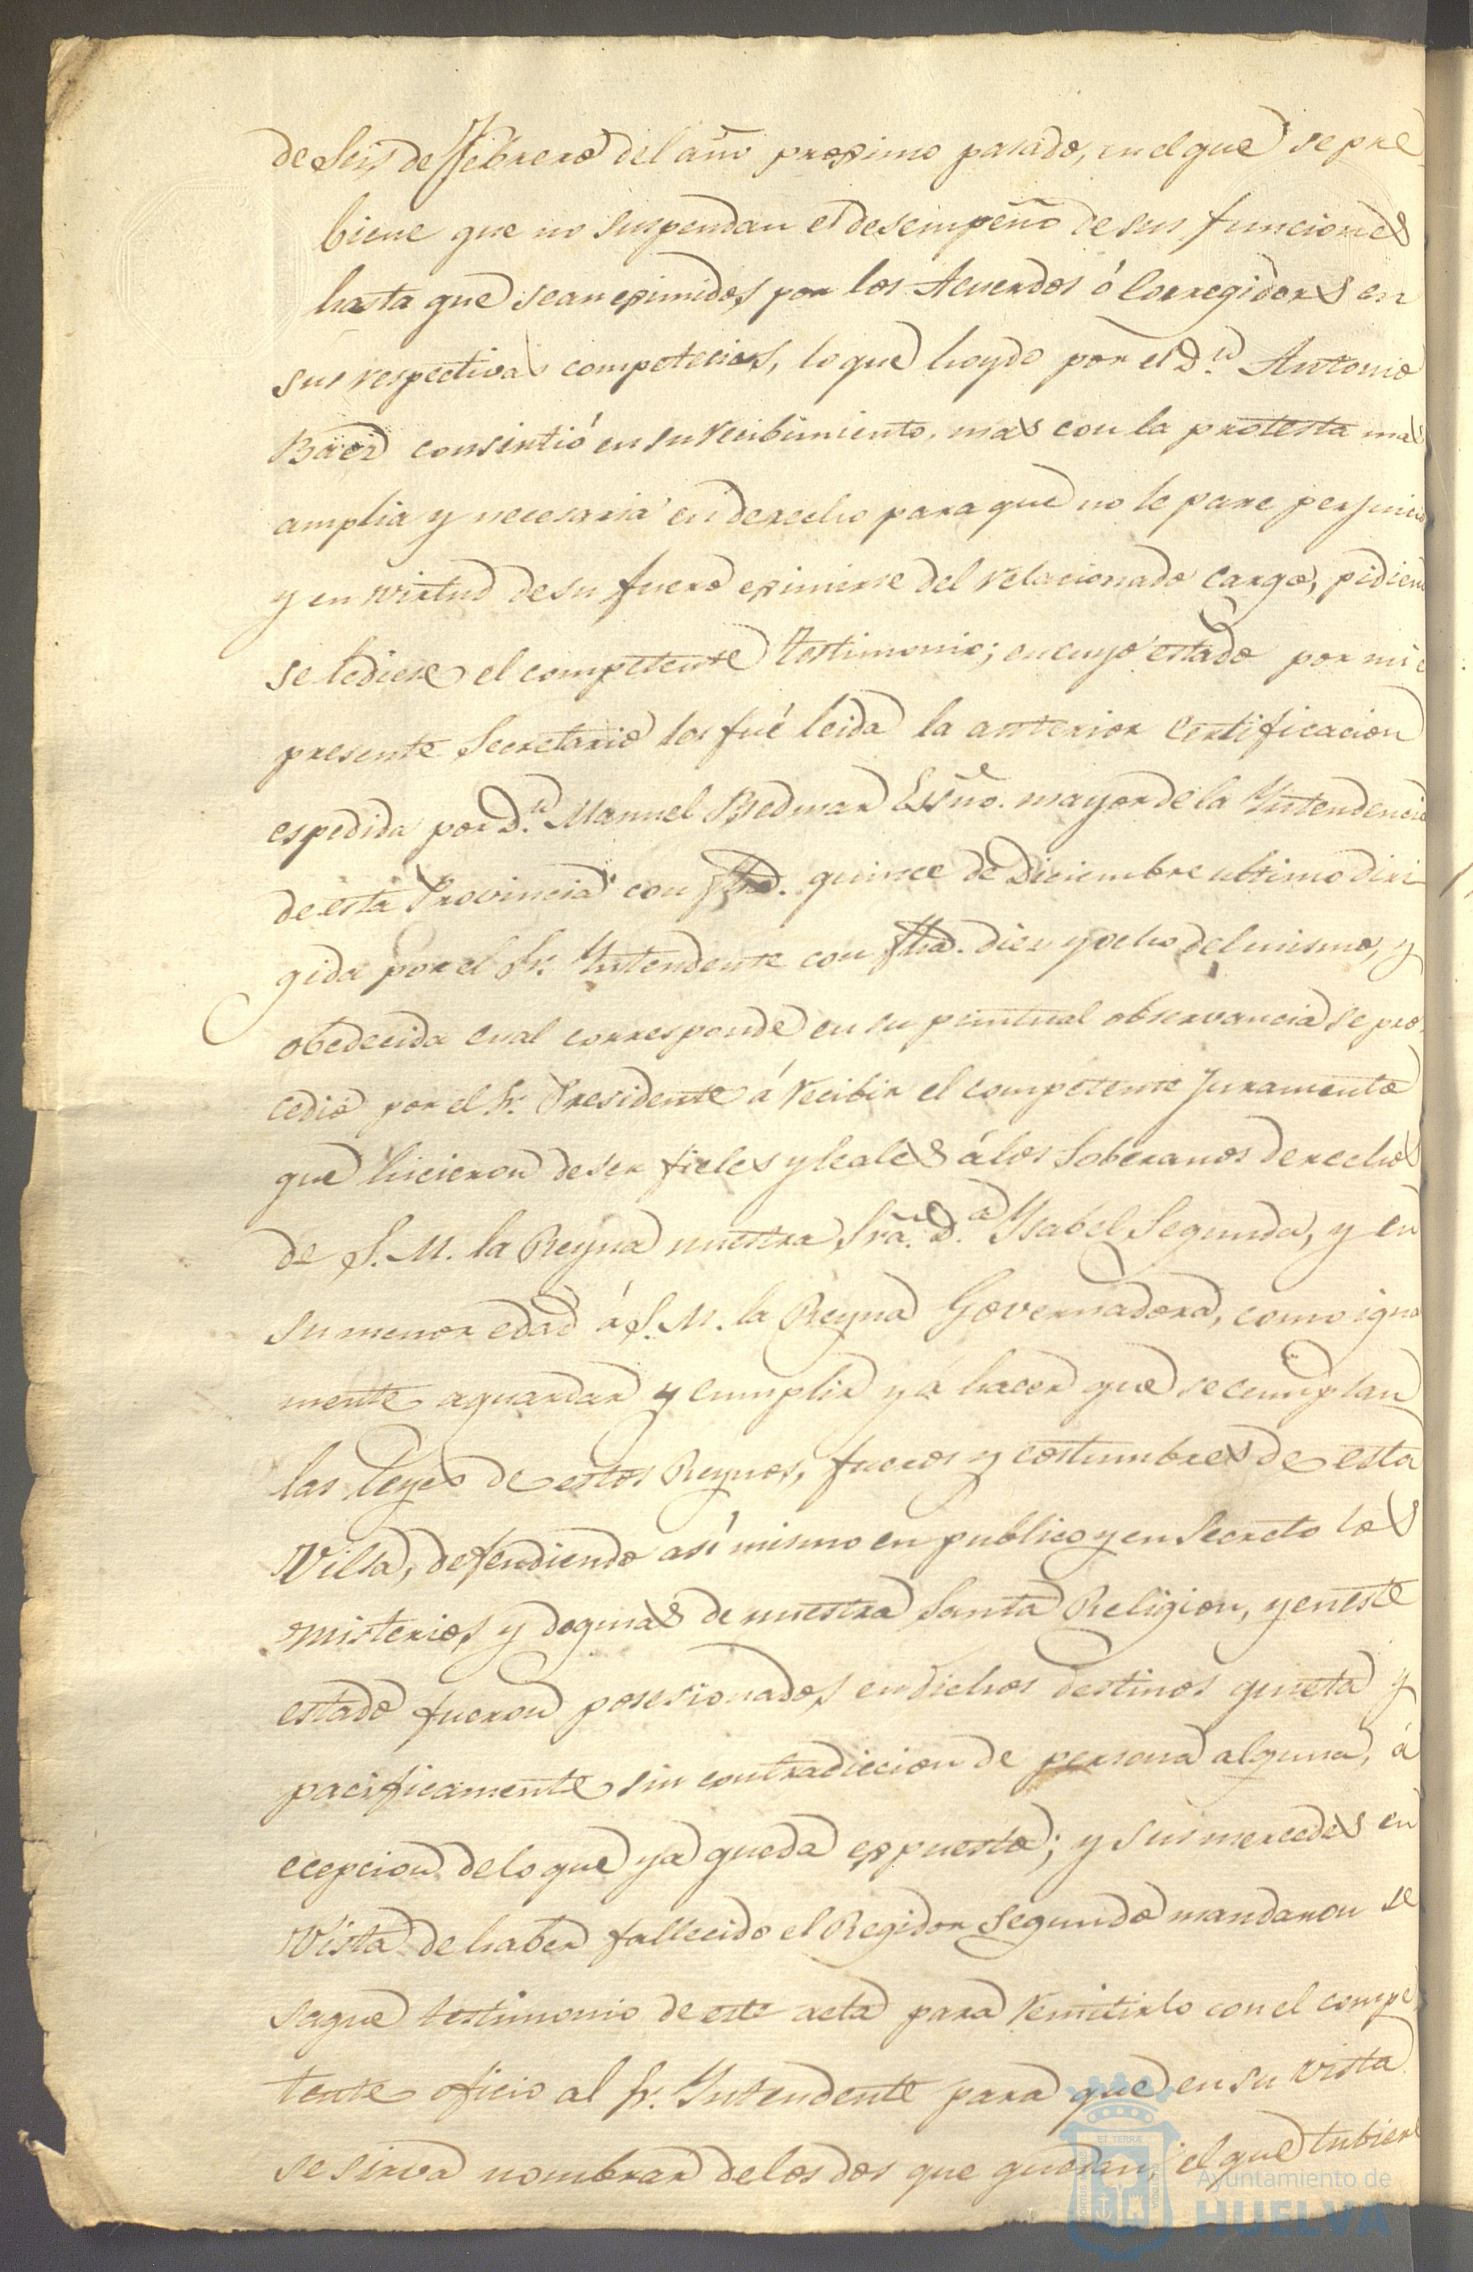 de Seis de Febrero del año proximo pasado, en el que se pre
biene que no suspendan el desempeño de sus funciones
hasta que sean esimidos por los Acuerdos ó Corregidores en
sus respectivas competecias, lo que hoydo por el D.n Antonio
Baez consintió en su recibimiento, mas con la protesta mas
amplia y necesaria en derecho para que no le pare perjuicio
y en virtud de su fuero esimirse del relacionado cargo, pidiend
se le diese el competente testimonio; en cuyo estado por mi e
presente Secretario les fué leida la anterior Certificacion
espedida por D.n Manuel Bedmar Essño. mayor de la Yntendencia
de esta Provincia con fha. quince de Diciembre ultimo diri
gida por el Sr. Yntendente con fha. diez y ocho del mismo, y
obedecida cual corresponde en su puntual observancia se pro
cedio por el Sr. Presidente á recibir el competente Juramento
que hicieron de ser fieles y leales á los Soberanos derechos
de S. M. la Reyna nuestra Sra. D.a Ysabel Segunda, y en
su menor edad á S. M. la Reyna Governadora, como igua
mente aguardar y cumplir y á hacer que se cumplan
las leyes de estos Reynos, fueros y costumbres de esta
Villa, defendiendo asi mismo en publico y en Secreto los
misterios y dogmas de nuestra Santa Religion, y en este
estado fueron posesionados en dichos destinos quieta y
pacificamente sin contradiccion de persona alguna, á
ecepcion de lo que ya queda espuesto; y sus mercedes en
Vista de haber fallecido el Regidor Segundo mandaron se
saque testimonio de este acta para remitirlo con el compe
tente oficio al Sr. Yntendente para que en su vista
se sirva nombrar de los dos que quedan, el que tubiere
Ayuntamiento de
HUELVA